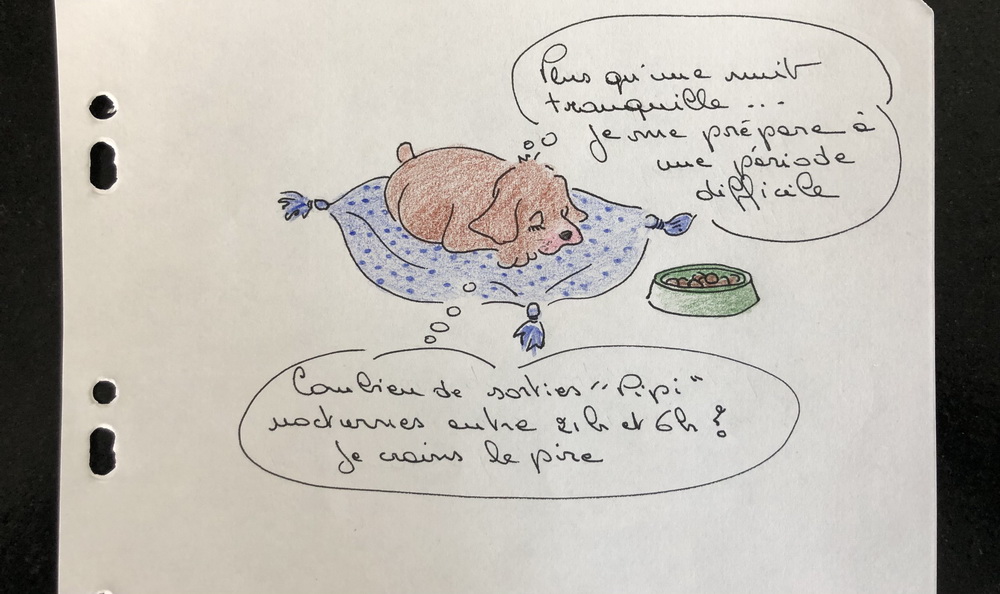 Plus qu'une nuit
tranquille ...
Je me prépare à
une période
difficile
Combien de sorties "Pipi"
nocturnes entre 21h et 6h ?
Je crains le pire